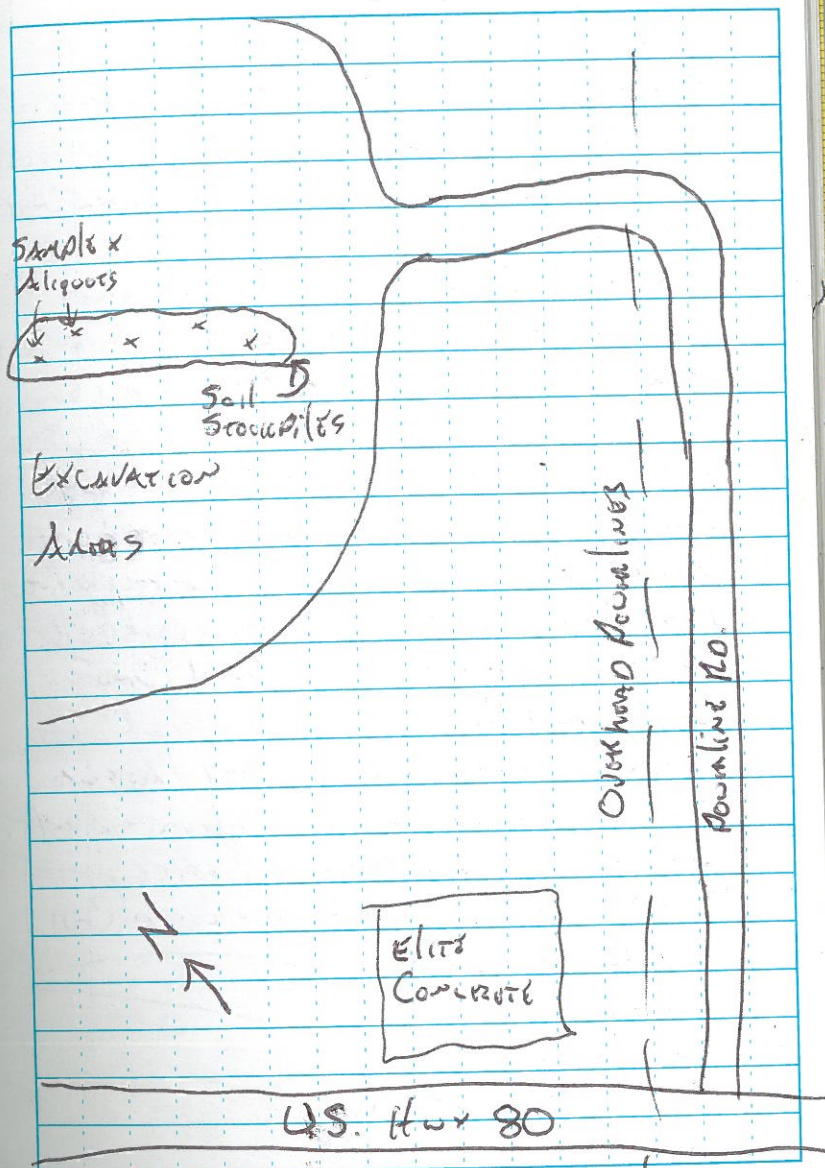 Sample x
Aliquots
Soil
Stockpiles
Excavation
Areas
Overhead Powerlines
Powerline Rd.
N
Elite
Concrete
U.S. Hwy 80